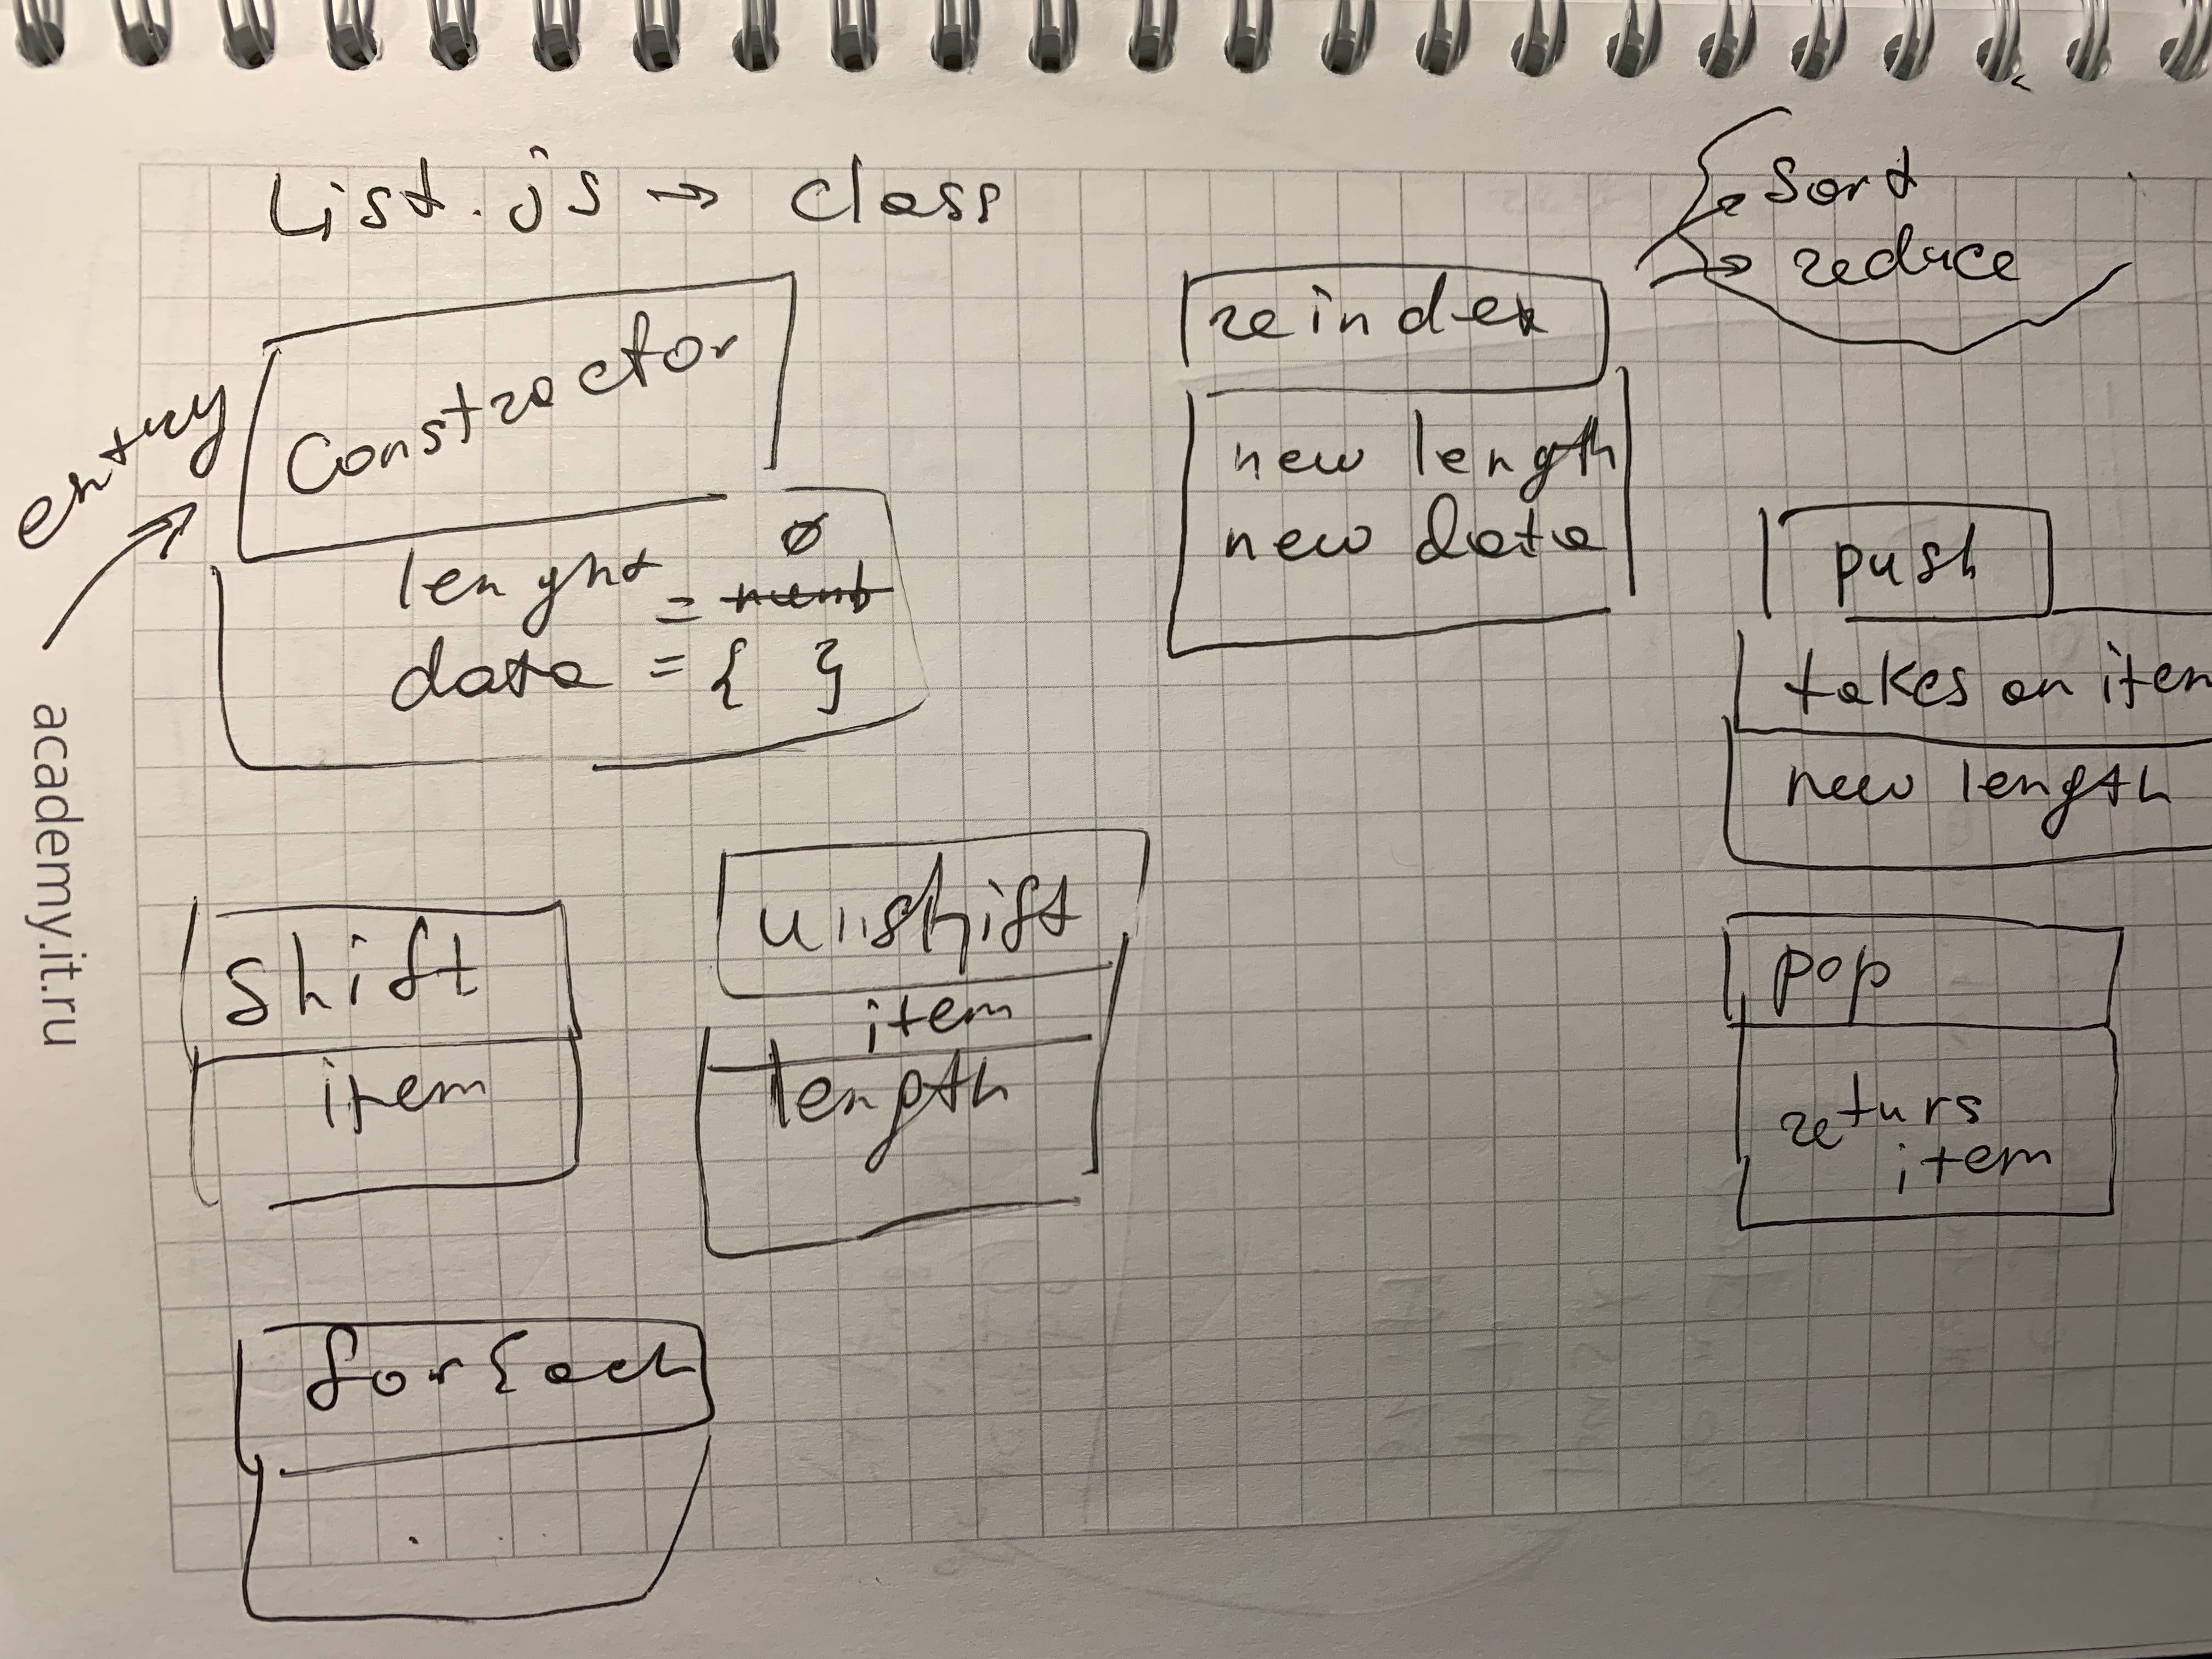 List.js → class
entry
Constractor
lenght = ø
data = { }
reindex
new length
new data
sort
→ reduce
push
takes an item
new length
shift
item
unshift
item
length
pop
returs
item
forEach
academy.it.ru